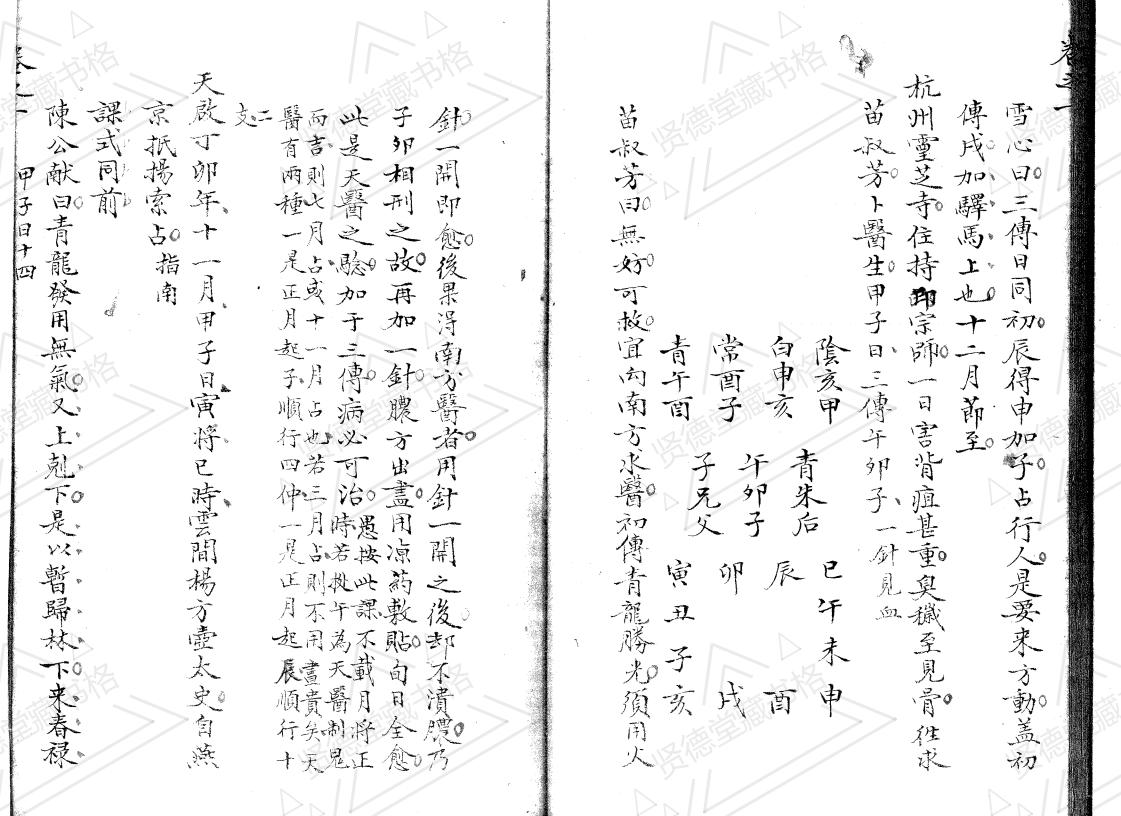 卷之一
雪心曰三傳日同初辰得申加子占行人是要来方動盖初
傳戌加驛馬上也十二月節至
杭州靈芝寺住持印宗師一日害背疽甚重臭穢至見骨往求
苗叔芳卜醫生甲子日三傳午卯子一針見血
陰亥甲
白申亥
常酉子
青午酉
青朱后
午卯子
子兄父
巳午未申
辰 酉
卯 戌
寅丑子亥
苗叔芳曰無妨可救宜向南方求醫初傳青龍勝光須用火
針一開即愈後果得南方醫者用針一開之後却不潰膿乃
子卯相刑之故再加一針膿方出盡用凉药敷貼旬日全愈
此是天醫之騐加于三傳病必可治愚按此課不載月將正
時若投午為天醫制鬼
而吉則七月占或十一月占也若三月占則不用晝貴矣天
醫有兩種一是正月起子順行四仲一是正月起辰順行十
二支
天啟丁卯年十一月甲子日寅将巳時雲間楊方壺太史自燕
京抵揚索占指南
課式同前
陳公献曰青龍發用無氣又上剋下是以暫歸林下来春禄
卷之一 甲子日十四
贤德堂藏书格